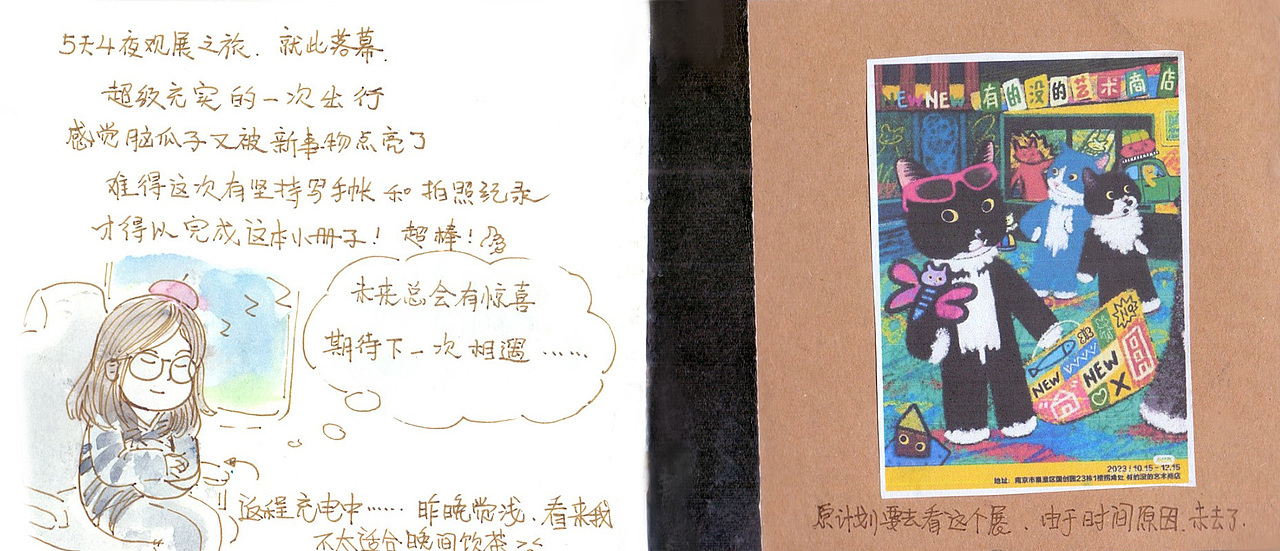 5天4夜观展之旅. 就此落幕.
超级充实的一次出行
感觉脑瓜子又被新事物点亮了
难得这次有坚持写手帐和拍照纪录
才得以完成这本小册子! 超棒!
未来总会有惊喜
期待下一次相遇 ......
Z
Z
Z
返程充电中...... 昨晚觉浅. 看来我
不太适合晚间饮茶
NEW NEW 有的没的艺术商店
NEW
NEW
2023 | 10.15 - 12.15
地址: 南京市秦淮区国创园23栋1楼 有的没的艺术商店
原计划要去看这个展. 由于时间原因.未去了.